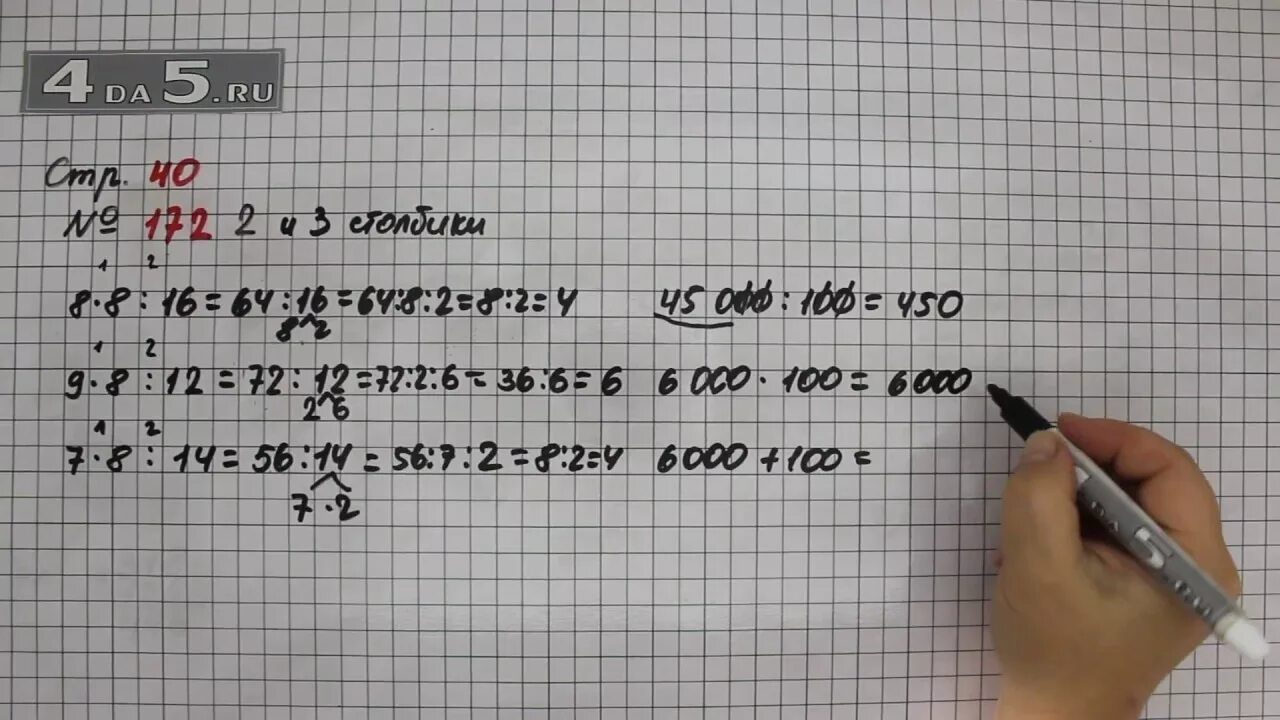 4DA5.RU
Стр. 40
№ 172 2 и 3 столбики
1 2
8·8 : 16 = 64 : 16 = 64:8:2 = 8:2 = 4
8 2
45 000 : 100 = 450
1 2
9·8 : 12 = 72 : 12 = 72:2:6 = 36:6 = 6
2 6
6 000 · 100 = 6 000
1 2
7·8 : 14 = 56 : 14 = 56:7:2 = 8:2=4
7·2
6000 + 100 =
DA 5.RU